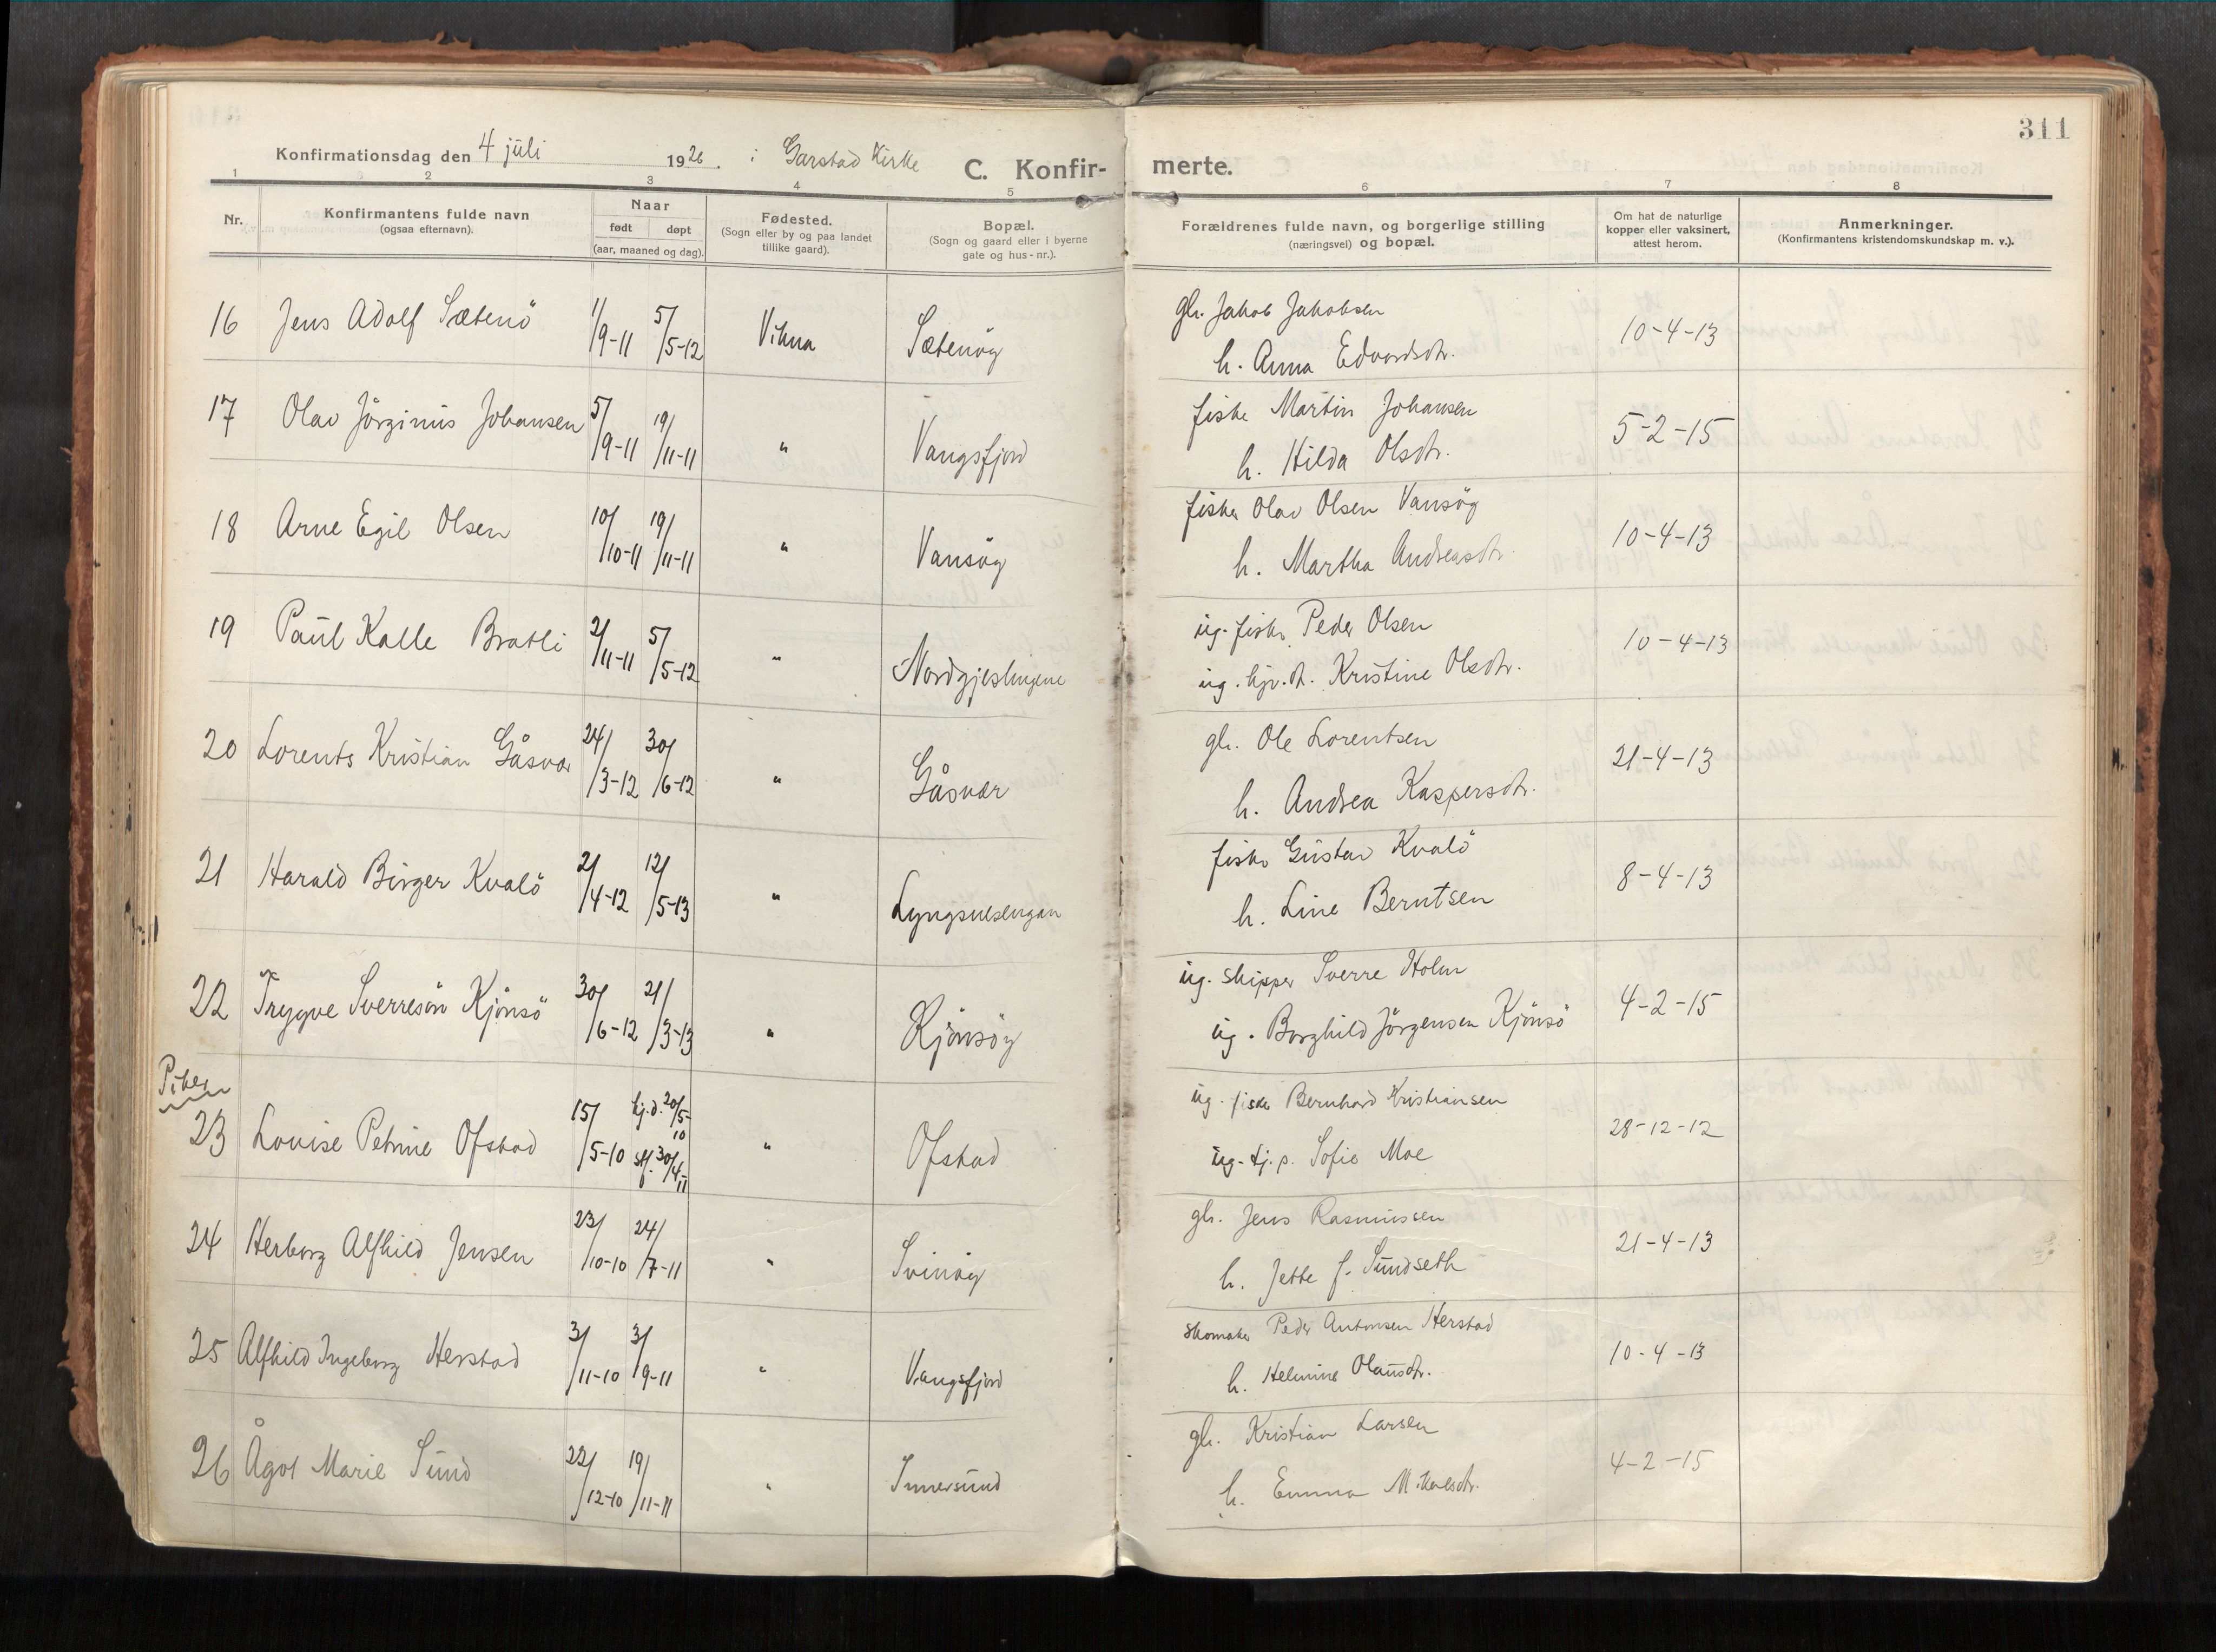 311
Konfirmationsdag den 4 juli 1926. i Garstad Kirke C. Konfir- merte.
1 2 3 4 5 6 7 8
Nr. Konfirmantens fulde navn (ogsaa efternavn). Naar født døpt (aar, maaned og dag). Fødested. (Sogn eller by og paa landet tillike gaard). Bopæl. (Sogn og gaard eller i byerne gate og hus-nr.). Forældrenes fulde navn, og borgerlige stilling (næringsvei) og bopæl. Om hat de naturlige kopper eller vaksinert, attest herom. Anmerkninger. (Konfirmantens kristendomskundskap m. v.).
16 Jens Adolf Sætenö 1/9-11 5/5-12 Vikna Sætenöy gbr. Jakob Jakobsen 10-4-13
h. Anna Edvardsdtr.
17 Olav Jörginus Johansen 5/9-11 19/11-11 " Vangsfjord fisker Martin Johansen 5-2-15
h. Hilda Olsdtr.
18 Arne Egil Olsen 10/10-11 19/11-11 " Vansöy fisker Olav Olsen Vansöy 10-4-13
h. Martha Andreasdtr.
19 Paul Kalle Bratli 2/11-11 5/5-12 " Nordgjeslingene ug. fisker Peder Olsen 10-4-13
ug. hjv. d. Kristine Olsdtr.
20 Lorents Kristian Gåsvær 24/3-12 30/6-12 " Gåsvær gbr. Ole Lorentsen 21-4-13
h. Andrea Kaspersdtr.
21 Harald Birger Kvalö 2/4-12 12/5-13 " Lyngsnesengan fisker Gustav Kvalö 8-4-13
h. Line Berntsen
22 Trygve Sverresön Kjönsö 30/6-12 2/3-13 " Kjönsöy ug. skipper Sverre Holm 4-2-15
ug. Borghild Jörgensen Kjönsö
Piker
23 Louise Petrine Ofstad 15/5-10 hj.d. 20/5-10 stf. 30/4-11 " Ofstad ug. fisker Bernhard Kristiansen 28-12-12
ug. tj. p. Sofie Moe
24 Herborg Alfhild Jensen 23/10-10 24/7-11 " Svinöy gbr. Jens Rasmussen 21-4-13
h. Jette f. Sundseth
25 Alfhild Ingeborg Herstad 3/11-10 3/9-11 " Vangsfjord skomaker Peder Antonsen Herstad 10-4-13
h. Helmine Olausdtr.
26 Ågot Marie Sund 22/12-10 19/11-11 " Innersund gbr. Kristian Larsen 4-2-15
h. Emma Mikalsdtr.